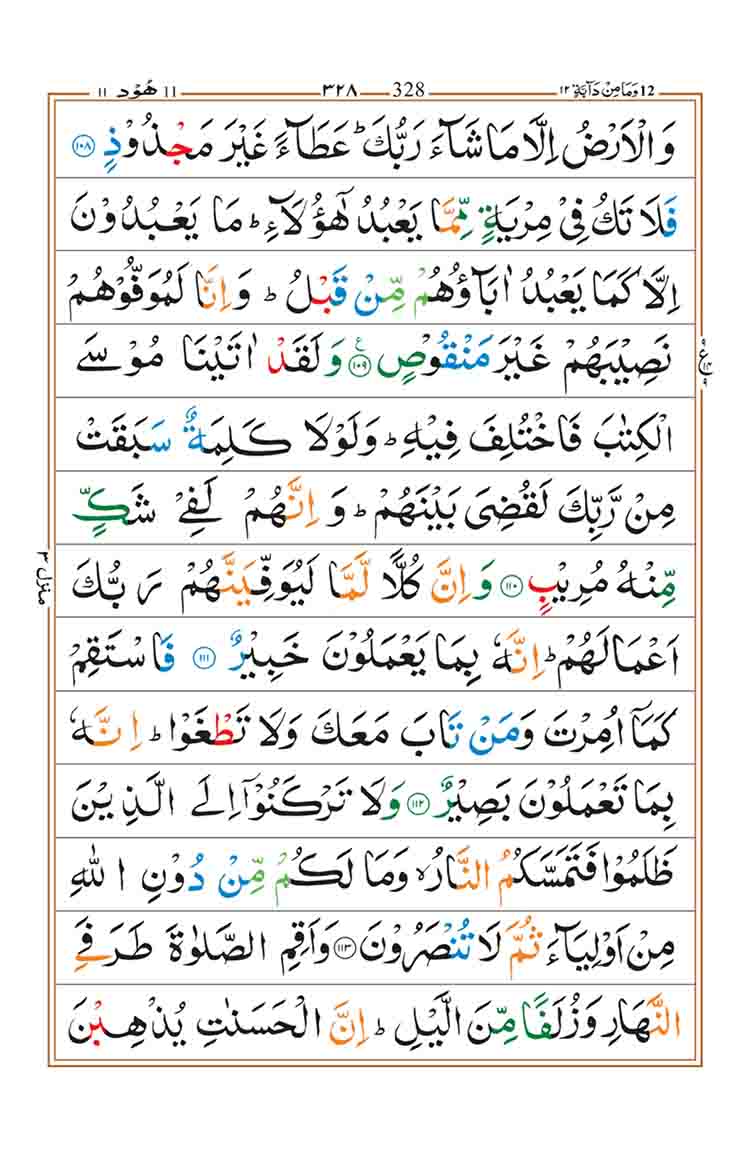 12 وَمَا مِنْ دَآبَّةٍ ١٢ 328 ٣٢٨ 11 هُوْد ١١
وَالْاَرْضُ اِلَّا مَا شَآءَ رَبُّكَ ؕ عَطَآءً غَيْرَ مَجْذُوْذٍ ﴿۱۰۸﴾
فَلَا تَكُ فِىْ مِرْيَةٍ مِّمَّا يَعْبُدُ هٰٓؤُلَآءِ ؕ مَا يَعْبُدُوْنَ
اِلَّا كَمَا يَعْبُدُ اٰبَآؤُهُمْ مِّنْ قَبْلُ ؕ وَاِنَّا لَمُوَفُّوْهُمْ
نَصِيْبَهُمْ غَيْرَ مَنْقُوْصٍ ﴿۱۰۹﴾ ع وَلَقَدْ اٰتَيْنَا مُوْسَى
ع ٩ ٩
الْكِتٰبَ فَاخْتُلِفَ فِيْهِ ؕ وَلَوْلَا كَلِمَةٌ سَبَقَتْ
مِنْ رَّبِّكَ لَقُضِىَ بَيْنَهُمْ ؕ وَاِنَّهُمْ لَفِىْ شَكٍّ
مِّنْهُ مُرِيْبٍ ﴿۱۱۰﴾ وَاِنَّ كُلًّا لَّمَّا لَيُوَفِّيَنَّهُمْ رَبُّكَ
منزل ٣
اَعْمَالَهُمْ ؕ اِنَّهٗ بِمَا يَعْمَلُوْنَ خَبِيْرٌ ﴿۱۱۱﴾ فَاسْتَقِمْ
كَمَاۤ اُمِرْتَ وَمَنْ تَابَ مَعَكَ وَلَا تَطْغَوْا ؕ اِنَّهٗ
بِمَا تَعْمَلُوْنَ بَصِيْرٌ ﴿۱۱۲﴾ وَلَا تَرْكَنُوْۤا اِلَى الَّذِيْنَ
ظَلَمُوْا فَتَمَسَّكُمُ النَّارُ ۙ وَمَا لَكُمْ مِّنْ دُوْنِ اللّٰهِ
مِنْ اَوْلِيَآءَ ثُمَّ لَا تُنْصَرُوْنَ ﴿۱۱۳﴾ وَاَقِمِ الصَّلٰوةَ طَرَفَىِ
النَّهَارِ وَزُلَفًا مِّنَ الَّيْلِ ؕ اِنَّ الْحَسَنٰتِ يُذْهِبْنَ